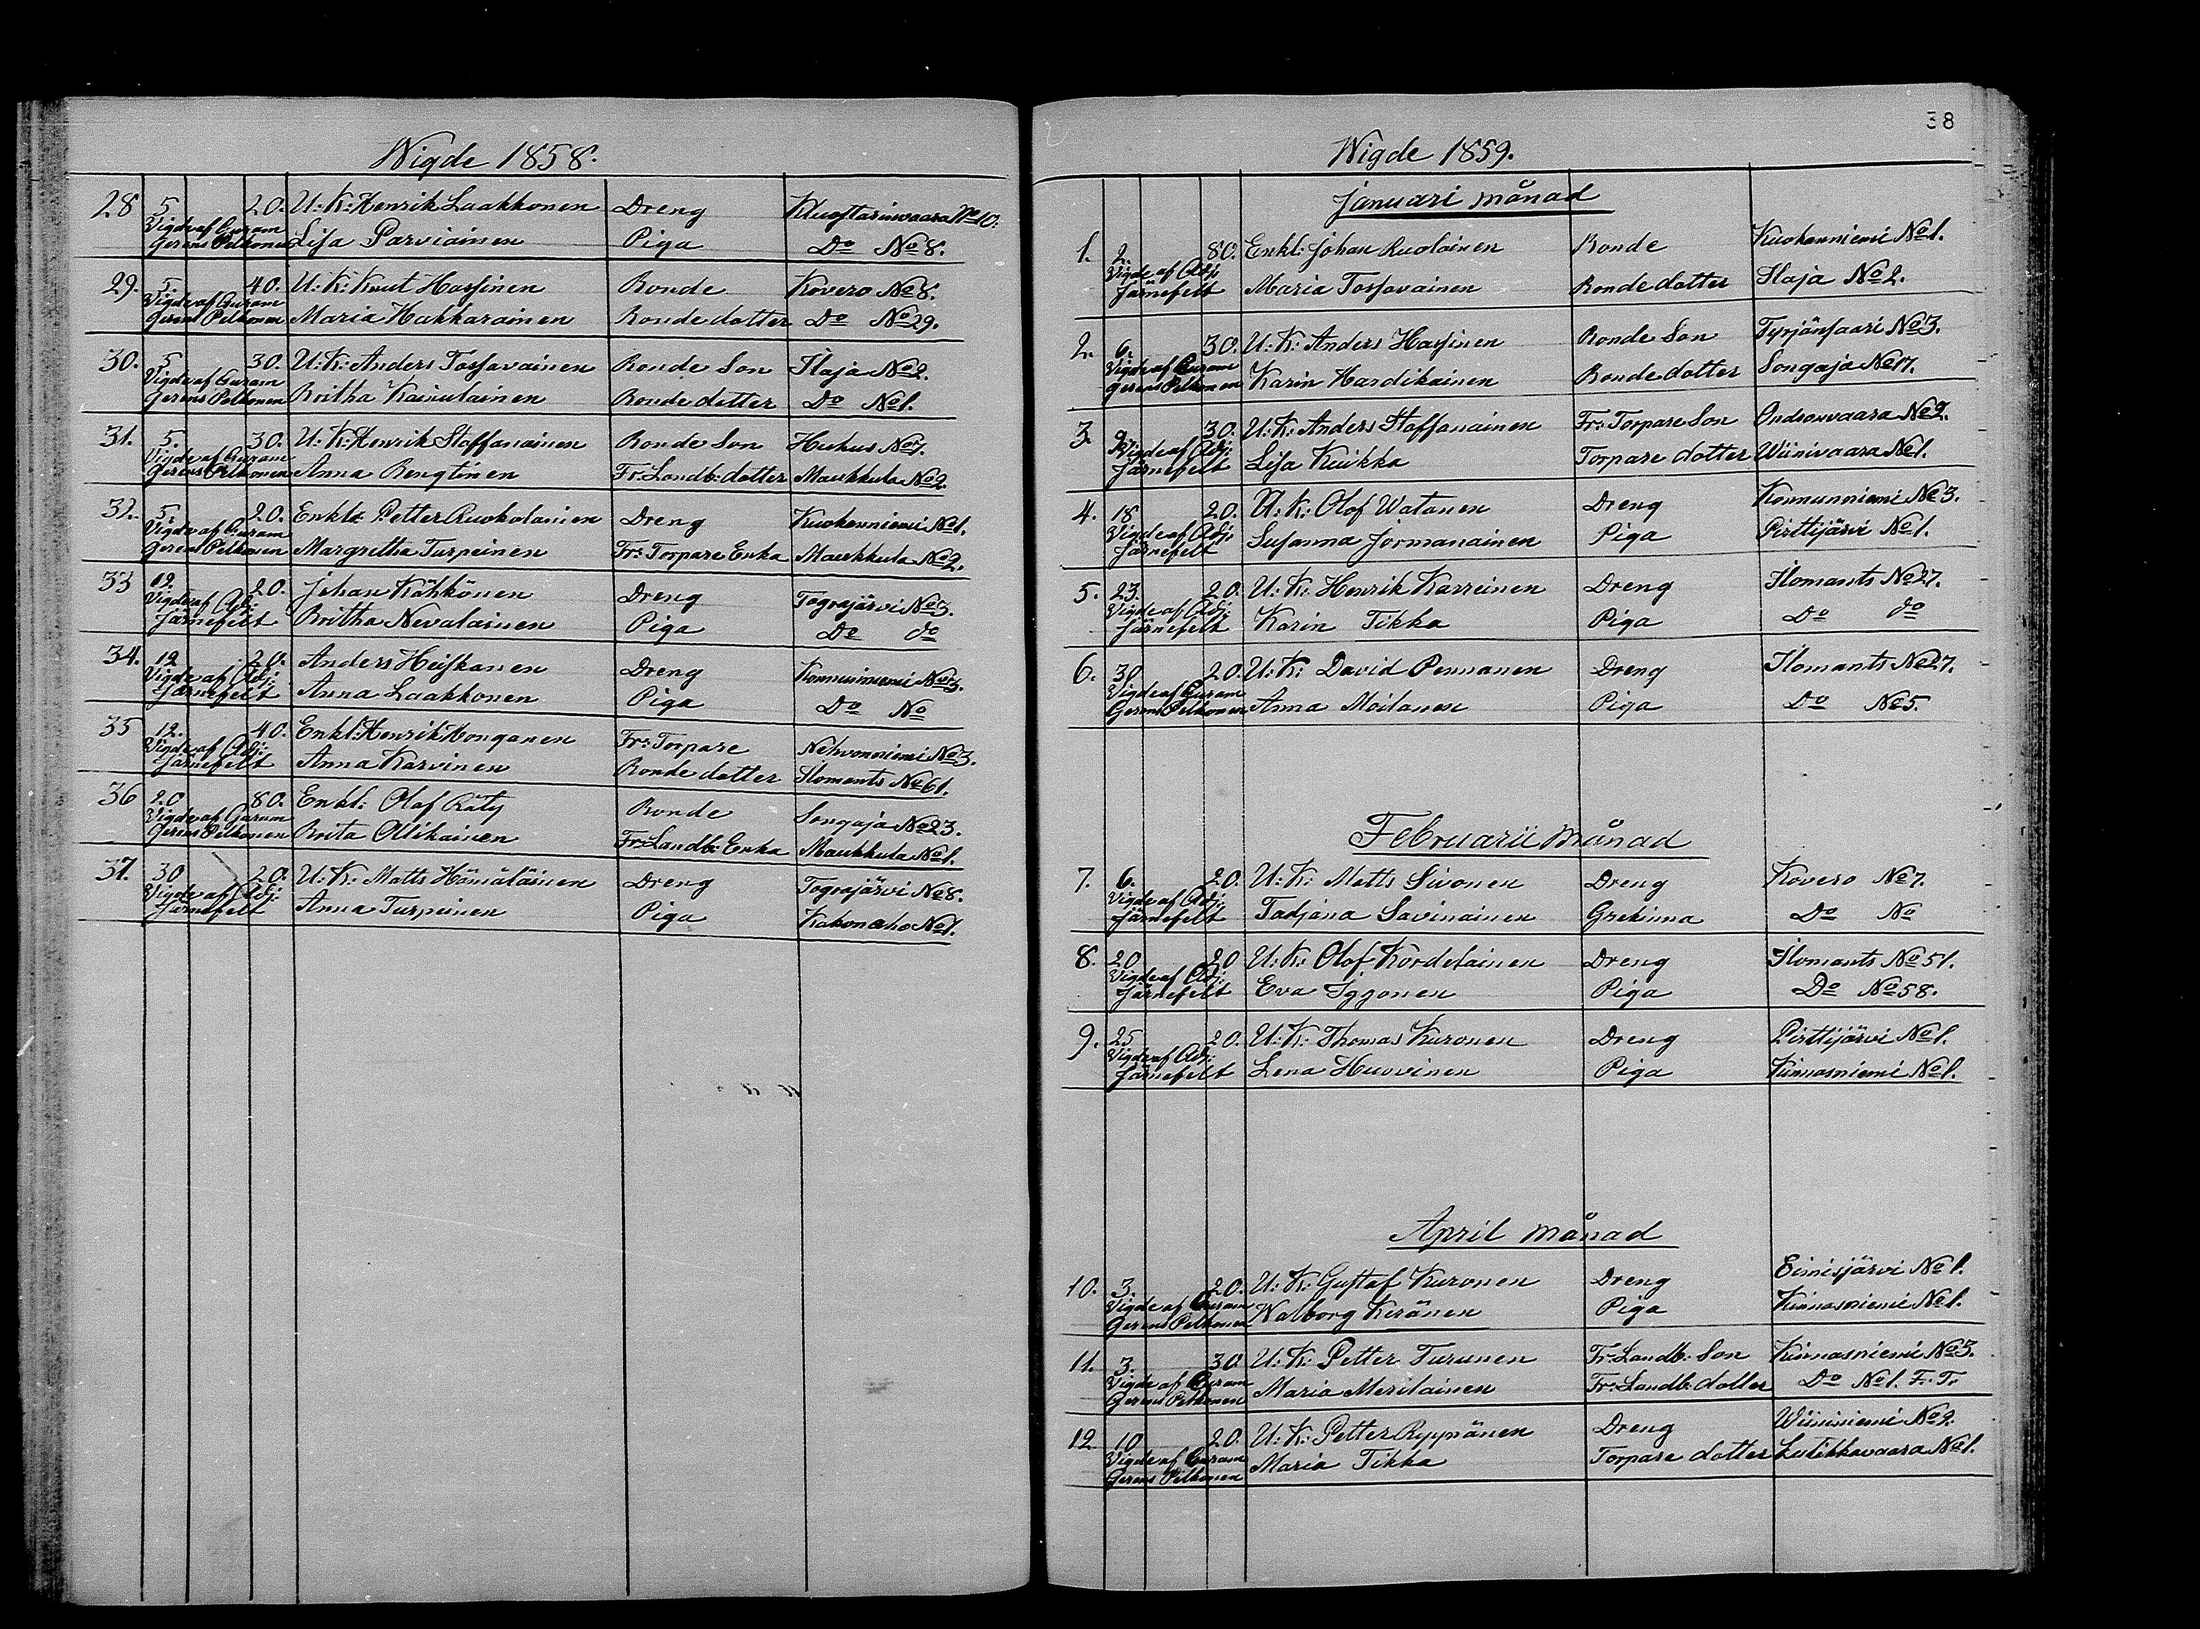 Wigde 1858.
28 5 20. U: K: Henrik Laakkonen Dreng Kluoftarinwaara No 10.
Vigde af Curam Gerens Pelkonen Lisa Parviainen Piga Do No 8.
29. 5. 40. U: K: Knut Hassinen Bonde Kovero No 8.
Vigde af Curam Gerens Pelkonen Maria Hakkarainen Bonde dotter Do No 29.
30. 5 30. U: K: Anders Tossavainen Bonde Son Ilaja No 2.
Vigde af Curam Gerens Pelkonen Britha Kainulainen Bonde dotter Do No 1.
31. 5. 30. U: K: Henrik Staffanainen Bonde Son Huhus No 7.
Vigde af Curam Gerens Pelkonen Anna Bengtinen Fr: Landb: dotter Maukkula No 2.
32. 5. 20. Enkl: Petter Ruokolainen Dreng Kuokanniemi No 1.
Vigde af Curam Gerens Pelkonen Margretha Turpeinen Fr: Torpare Enka Maukkula No 2.
33 12. 20. Johan Kökkönen Dreng Tograjärvi No 3.
Vigde af Adj: Järnefelt Britha Nevalainen Piga Do do
34. 12 20. Anders Heiskanen Dreng Konnuniemi No 3.
Vigde af Adj: Järnefelt Anna Laakkonen Piga Do No
35 12. 40. Enkl: Henrik Honganen Fr: Torpare Nehvonniemi No 3.
Vigde af Adj: Järnefelt Anna Karvinen Bonde dotter Ilomants No 61.
36 20 80. Enkl: Olof Räty Bonde Songaja No 23.
Vigde af Curam Gerens Pelkonen Brita Ollikainen Fr: Landb: Enka Maukkula No 1.
37. 30 20. U: K: Matts Hämäläinen Dreng Tograjärvi No 8.
Vigde af Adj: Järnefelt Anna Turpeinen Piga Kakonaho No 1.
38
Wigde 1859.
Januari månad
1. 2. 80. Enkl: Johan Ruolainen Bonde Kuokanniemi No 1.
Vigde af Adj: Järnefelt Maria Tossavainen Bonde dotter Ilaja No 2.
2. 6. 30. U: K: Anders Hassinen Bonde Son Tyrjänsaari No 3.
Vigde af Curam Gerens Pelkonen Karin Hardikainen Bonde dotter Songaja No 17.
3. 9. 30. U: K: Anders Staffanainen Fr: Torpare Son Ondronvaara No 2.
Vigde af Adj: Järnefelt Lisa Kuikka Torpare dotter Wiinivaara No 1.
4. 18 20. U: K: Olof Watanen Dreng Konnunniemi No 3.
Vigde af Adj: Järnefelt Susanna Jormanainen Piga Pirttijärvi No 1.
5. 23. 20. U: K: Henrik Karreinen Dreng Ilomants No 27.
Vigde af Adj: Järnefelt Karin Tikka Piga Do do
6. 30 20. U: K: David Pennanen Dreng Ilomants No 27.
Vigde af Curam Gerens Pelkonen Anna Moilanen Piga Do No 5.
Februarii månad
7. 6. 20. U: K: Matts Sivonen Dreng Kovero No 7.
Vigde af Adj: Järnefelt Tadjana Savinainen Grekinna Do No
8. 20 20 U: K: Olof Kördelainen Dreng Ilomants No 51.
Vigde af Adj: Järnefelt Eva Iggonen Piga Do No 58.
9. 25 20. U: K: Thomas Kuronen Dreng Pirttijärvi No 1.
Vigde af Adj: Järnefelt Lena Huovinen Piga Kinnasniemi No 1.
April månad
10. 3. 20. U: K: Gustaf Kuronen Dreng Eimisjärvi No 1.
Vigde af Curam Gerens Pelkonen Walborg Keränen Piga Kinnasniemi No 1.
11. 3. 30. U: K: Petter Turunen Fr: Landb: Son Kinnasniemi No 3.
Vigde af Curam Gerens Pelkonen Maria Merilainen Fr: Landb: dotter Do No 1. F: T:
12 10 20. U: K: Petter Ryynänen Dreng Wiininiemi No 2.
Vigde af Curam Gerens Pelkonen Maria Tikka Torpare dotter Lutikkavaara No 1.